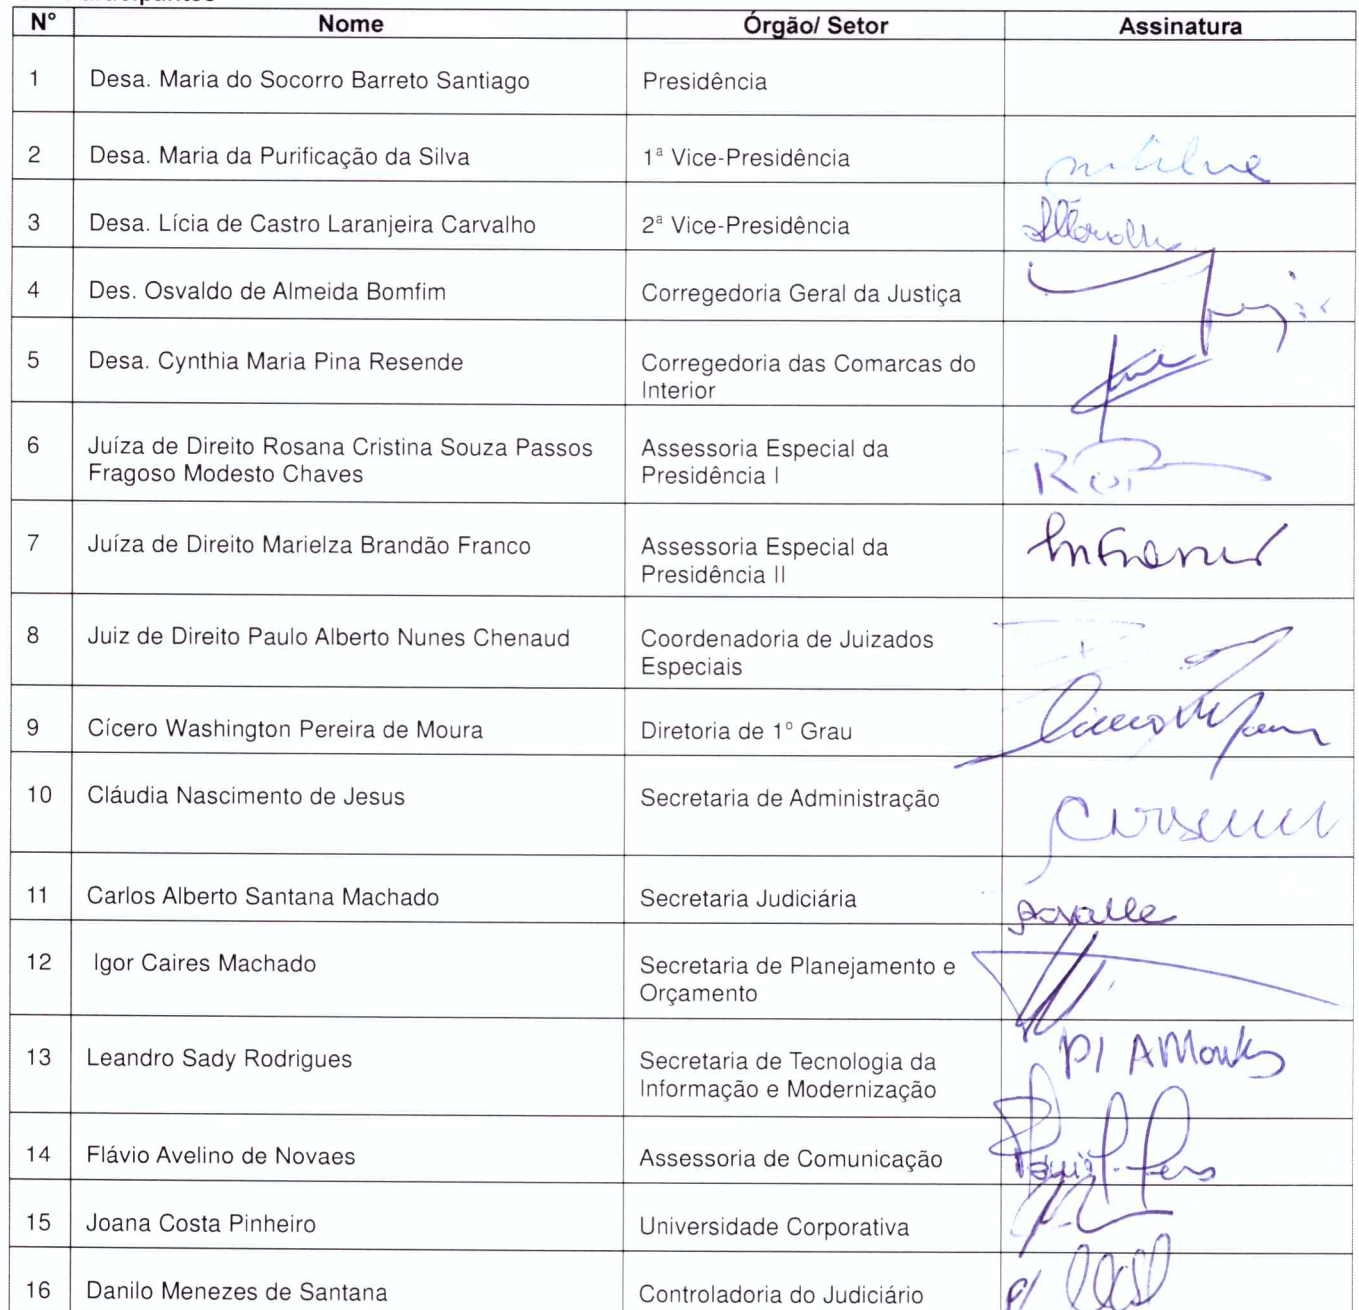 N° Nome Órgão/ Setor Assinatura
1 Desa. Maria do Socorro Barreto Santiago Presidência
2 Desa. Maria da Purificação da Silva 1ª Vice-Presidência
3 Desa. Lícia de Castro Laranjeira Carvalho 2ª Vice-Presidência
4 Des. Osvaldo de Almeida Bomfim Corregedoria Geral da Justiça
5 Desa. Cynthia Maria Pina Resende Corregedoria das Comarcas do
Interior
6 Juíza de Direito Rosana Cristina Souza Passos Assessoria Especial da
Fragoso Modesto Chaves Presidência I
7 Juíza de Direito Marielza Brandão Franco Assessoria Especial da
Presidência II
8 Juiz de Direito Paulo Alberto Nunes Chenaud Coordenadoria de Juizados
Especiais
9 Cícero Washington Pereira de Moura Diretoria de 1º Grau
10 Cláudia Nascimento de Jesus Secretaria de Administração
11 Carlos Alberto Santana Machado Secretaria Judiciária
12 Igor Caires Machado Secretaria de Planejamento e
Orçamento
13 Leandro Sady Rodrigues Secretaria de Tecnologia da
Informação e Modernização
14 Flávio Avelino de Novaes Assessoria de Comunicação
15 Joana Costa Pinheiro Universidade Corporativa
16 Danilo Menezes de Santana Controladoria do Judiciário